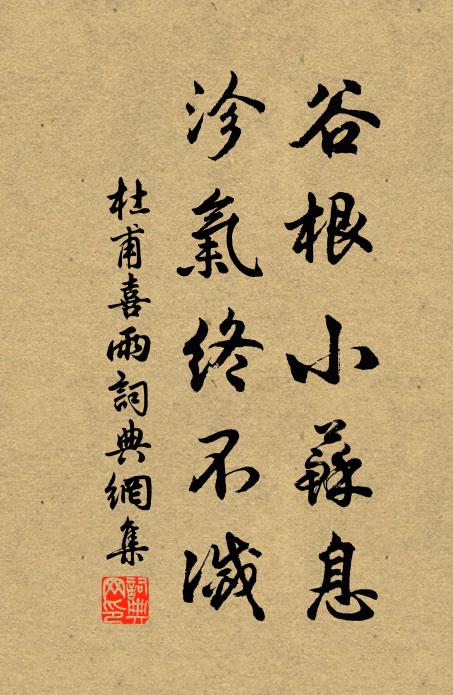 谷根小蘇息
沴氣終不滅
杜甫喜雨詞典網集
詞典网印